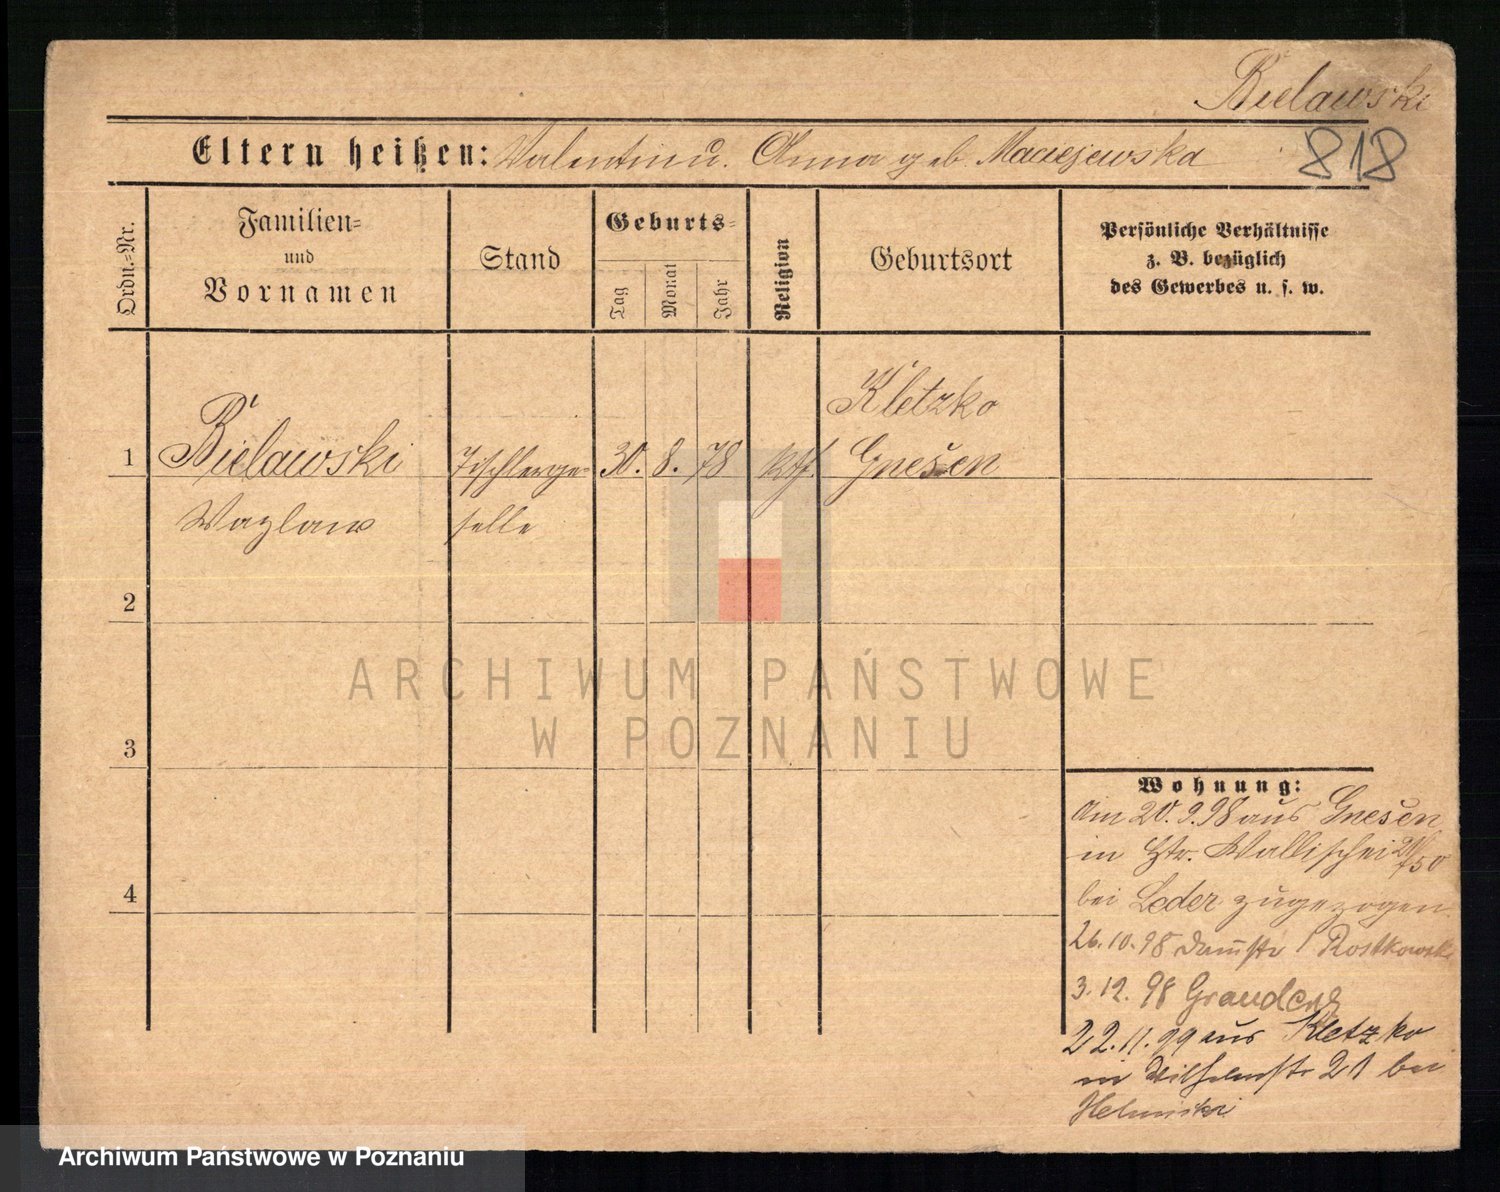 Bielawski
818
Eltern heißen: Valentin u. Anna geb. Maciejewska
Ordn.-Nr.
Familien-
und
Vornamen
Stand
Geburts-
Tag
Monat
Jahr
Religion
Geburtsort
Persönliche Verhältnisse
z. B. bezüglich
des Gewerbes u. s. w.
Kletzko
1 Bielawski Tischlerge- 30. 8. 78 kth. Gnesen
Wazlaw selle
2
3
4
Wohnung:
Am 20.9.98 aus Gnesen
in Str. Wallischei
bei Leder zugezogen
26.10.98 Rostkowski
3.12.98
22.11.99 aus Kletzko
in Wilhelmstr 21 bei
ARCHIWUM PAŃSTWOWE
W POZNANIU
Archiwum Państwowe w Poznaniu